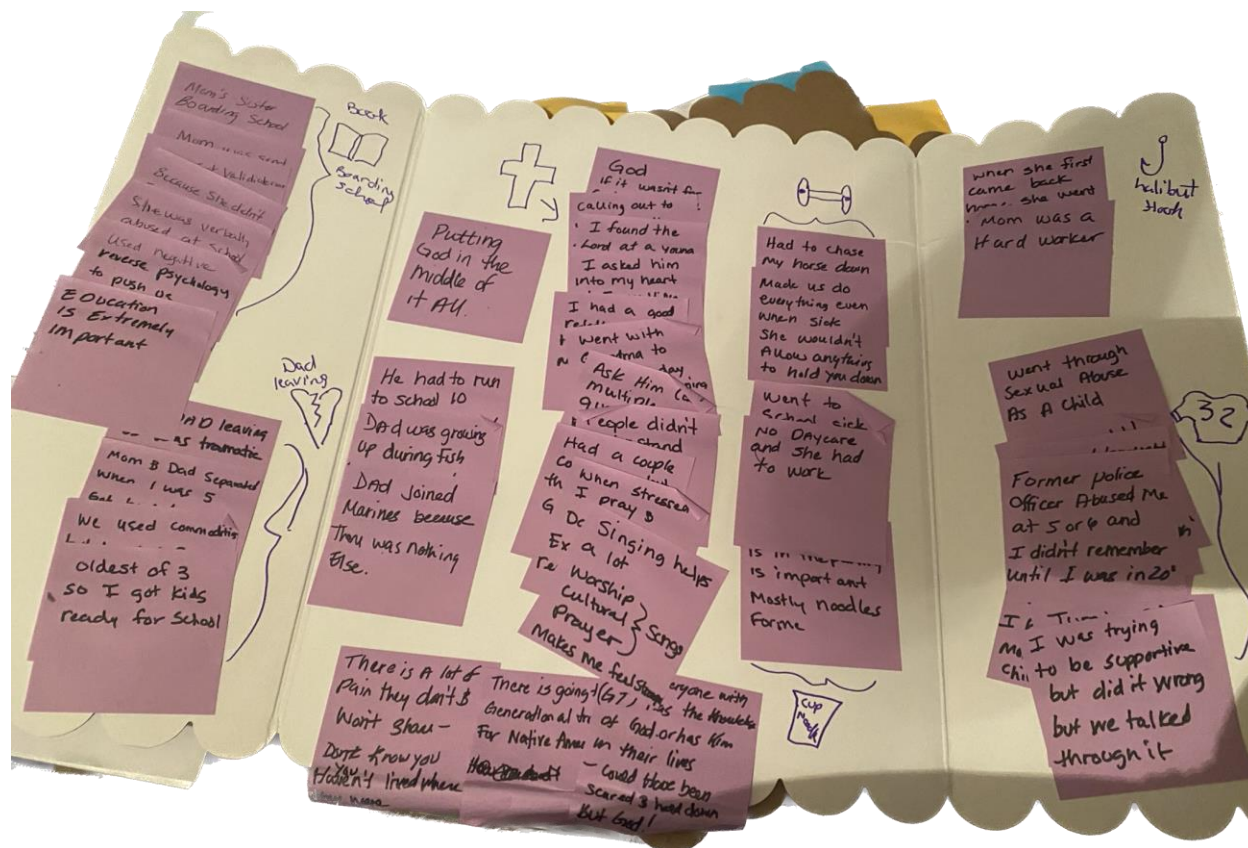 Mom's Sister
Boarding School
Mom was sent
Because She didn't
She was verbally
abused at School
Used negative
reverse psychology
to push us
Education
is Extremely
important
Book
Boarding
School
Dad
leaving
DAD leaving
was traumatic
Mom & Dad Separated
when I was 5
We used commodities
oldest of 3
so I got kids
ready for School
Putting
God in the
middle of
it All.
He had to run
to school
Dad was growing
up during Fish
Dad joined
Marines because
There was nothing
Else.
There is A lot of
Pain they don't &
Won't Share -
Don't Know you
Haven't lived where
God
if it wasn't for
calling out to
I found the
Lord at a young
I asked him
into my heart
I had a good
Went with
Ask Him
multiple
People didn't
Had a couple
when stressed
I pray
Singing helps
a lot
Worship
Cultural
Prayer
Songs
Makes me feel
There is going
Generational
For Native
everyone with
the knowledge
of God or has Him
in their lives
- Could Have been
scared & hard down
But God!
Had to chase
My horse down
Made us do
everything even
when Sick
She wouldn't
Allow anything
to hold you down
Went to
School sick
No Daycare
and She had
to work
is important
Mostly noodles
For me
Cup
When she first
came back
she went
Mom was a
Hard worker
halibut
Hook
Went through
Sexual Abuse
As A Child
32
Former police
Officer Abused Me
at 5 or 6 and
I didn't remember
until I was in 20's
I was trying
to be supportive
but did it wrong
but we talked
through it